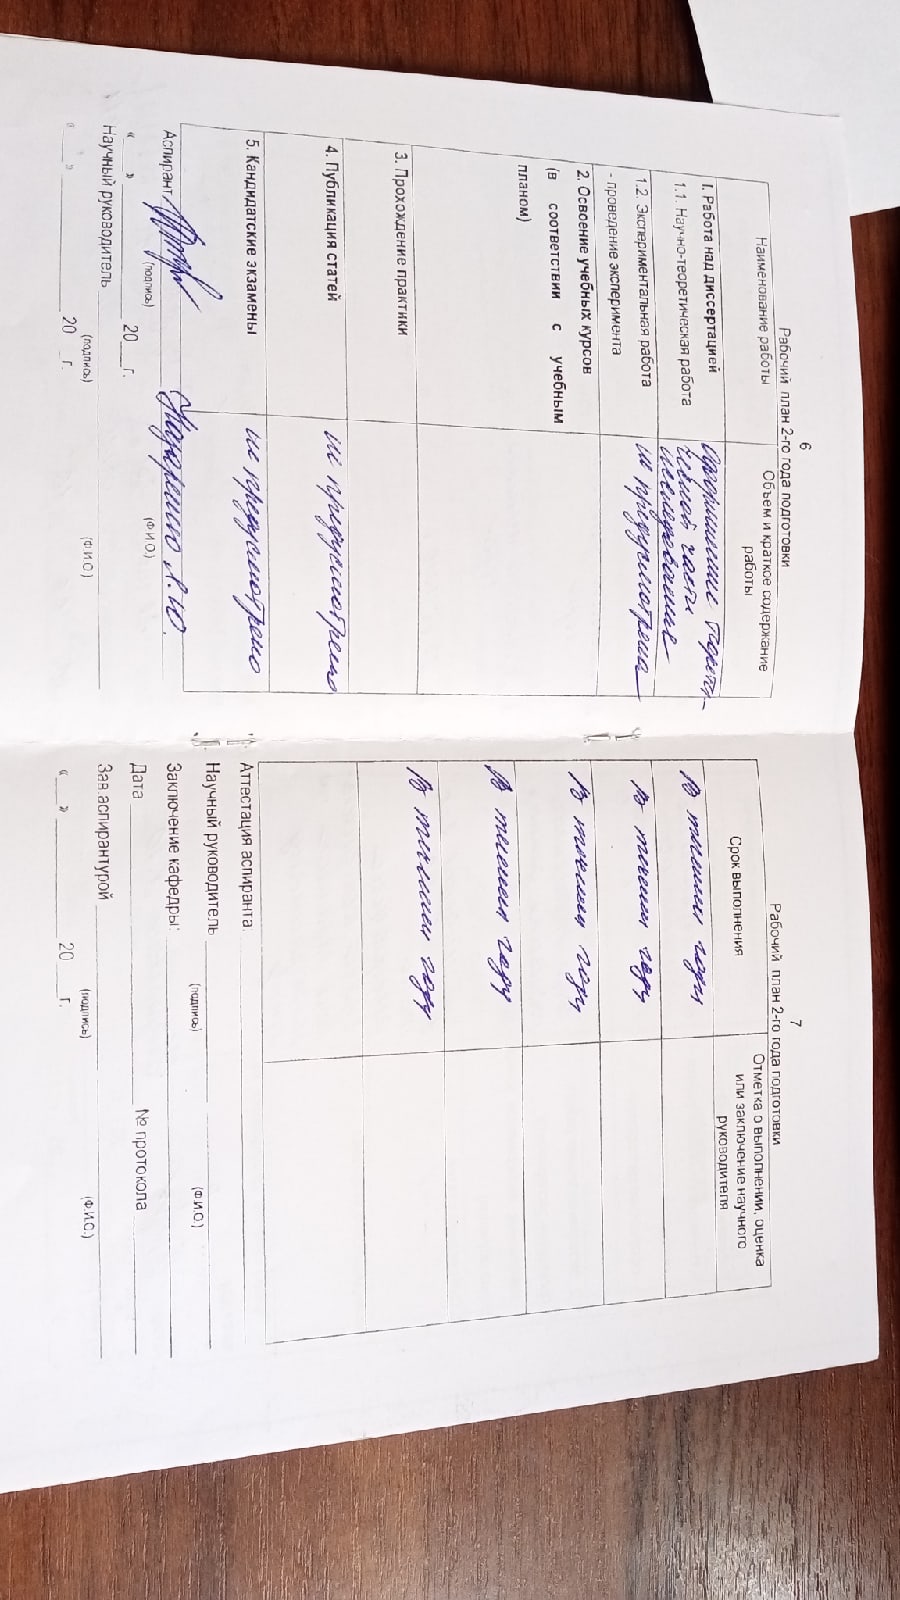 6
Рабочий план 2-го года подготовки
Наименование работы
Объем и краткое содержание
работы
I. Работа над диссертацией
1.1. Научно-теоретическая работа
Продолжение теорети-
ческой части
исследования
1.2. Экспериментальная работа
- проведение эксперимента
не предусмотрена
2. Освоение учебных курсов
(в соответствии с учебным
планом)
3. Прохождение практики
4. Публикация статей
не предусмотрено
5. Кандидатские экзамены
не предусмотрено
Аспирант
(подпись)
(Ф.И.О.)
« ___ » ________ 20 ___ г.
Научный руководитель
(подпись)
(Ф.И.О.)
« ___ » ________ 20 ___ г.
7
Рабочий план 2-го года подготовки
Срок выполнения
Отметка о выполнении, оценка
или заключение научного
руководителя
В течении года
В течении года
В течении года
В течении года
В течении года
Аттестация аспиранта:
Научный руководитель
(подпись)
(Ф.И.О.)
Заключение кафедры:
Дата ________ № протокола ________
Зав.аспирантурой
(подпись)
(Ф.И.О.)
« ___ » ________ 20 ___ г.